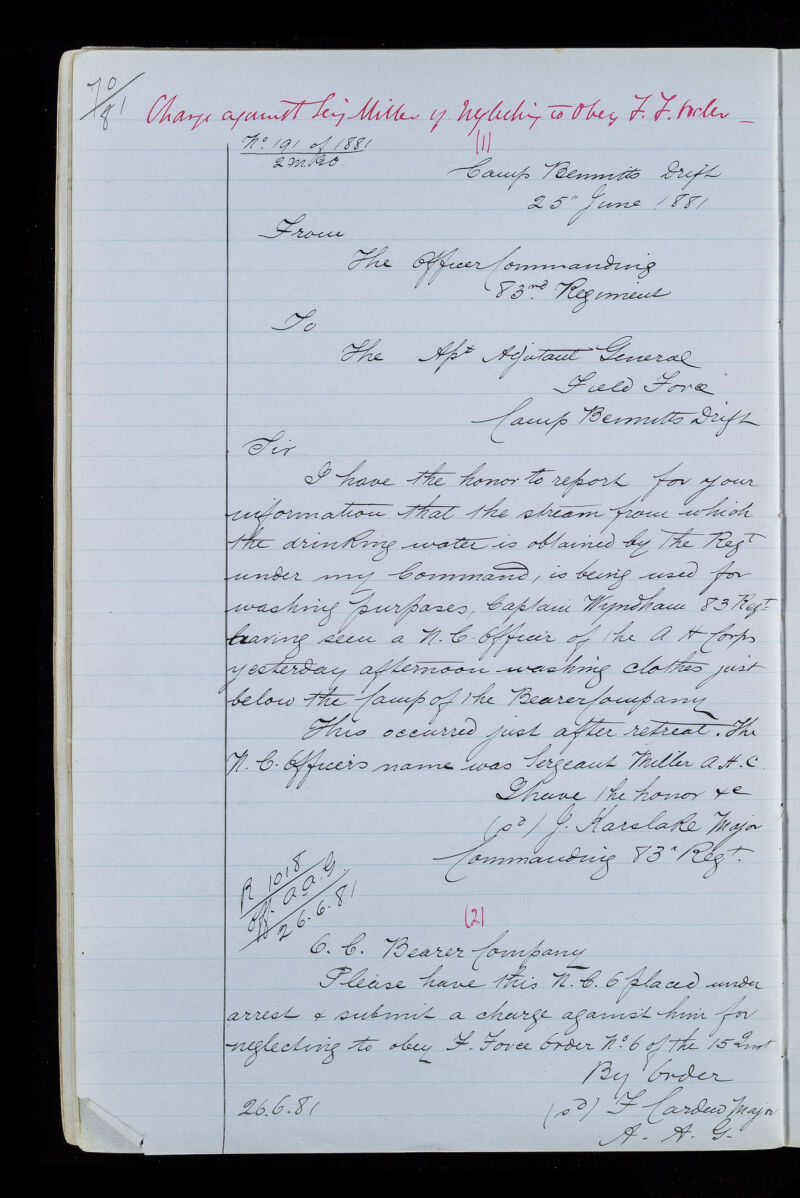 70/81
Charge against Serj Miller of Neglecting to Obey F. F. Order —
No. 191 of 1881
(1)
Camp Bennetts Drift
25" June 1881
From
The Officer Commanding
83rd Regiment
To
The Asst Adjutant General
Field Force
Camp Bennetts Drift
Sir
I have the honor to report for your
information that the stream from which
the drinking water is obtained by the Regt
under my Command, is being used for
washing purposes, Captain Wyndham 83 Regt
having seen a N. C. Officer of the A H Corps
yesterday afternoon washing clothes just
below the Camp of the Bearer Company
This occurred just after retreat. The
N. C. Officers name was Sergeant Miller A. H. C.
I have the honor &c
(sd) J. Karslake Major
Commanding 83d Regt.
R 1018
Off. A A. G
26.6.81
(2)
O. C. Bearer Company
Please have this N. C. O placed under
arrest & submit a charge against him for
neglecting to obey F. Force Order No. 6 of the 15 Inst
By Order
26.6.81
(sd) F Cardew Major
A. A. G.